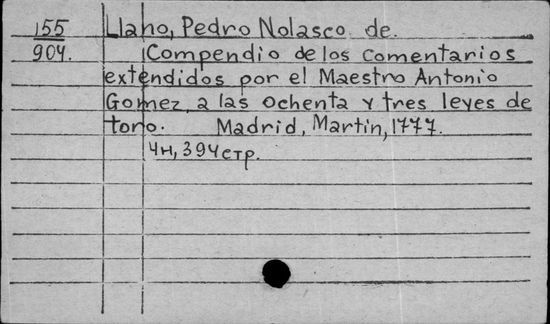 155 Llano, Pedro Nolasco de.
904. Compendio de los comentarios
extendidos por el Maestro Antonio
Gomez, a las ochenta y tres leyes de
toro. Madrid, Martin, 1777.
4н, 394 стр.